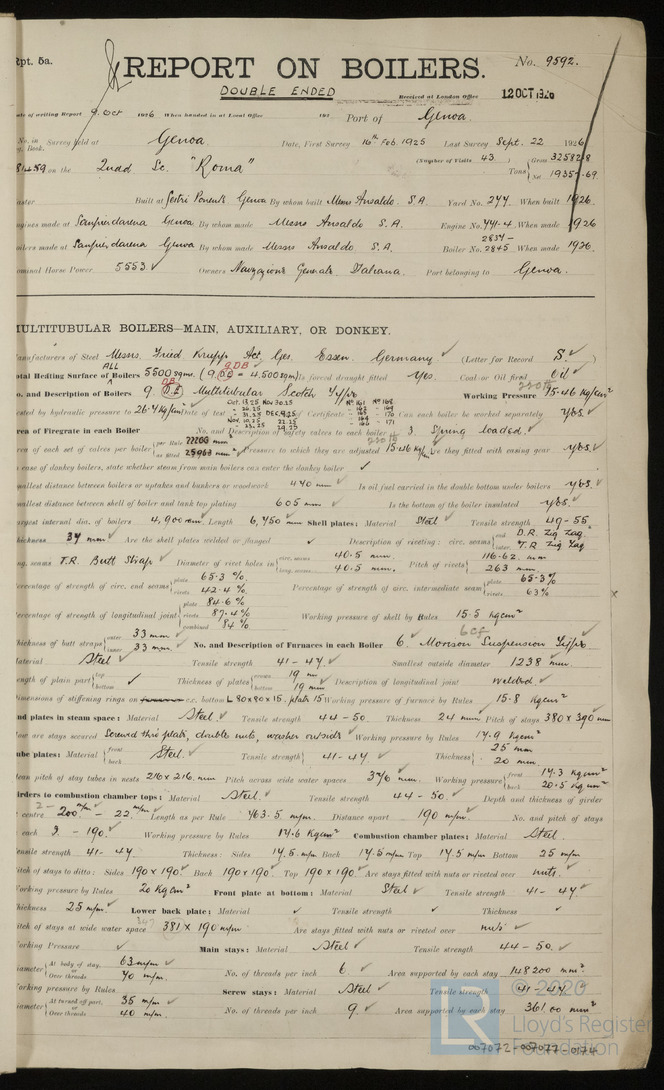 Rpt. 5a.
REPORT ON BOILERS.
No. 9592.
DOUBLE ENDED
Received at London Office 12 OCT 1926
of writing Report 9. Oct 1926 When handed in at Local Office 192 Port of Genoa.
No. in Survey held at Genoa. Date, First Survey 16th Feb. 1925 Last Survey Sept. 22 1926
Book.
on the Quad Sc. "Roma" (Number of Visits 43.) Tons Gross 32582.8 Net
Built at Sestri Ponente Genoa By whom built Messrs Ansaldo S.A Yard No. 277 When built 1926.
made at Sampierdarena Genoa By whom made Messrs Ansaldo S.A. Engine No. 741-4 When made 1926
made at Sampierdarena Genoa By whom made Messrs Ansaldo S.A. Boiler No. 2837-2845 When made 1926.
Horse Power 5553 Owners Navigazione Generale Italiana Port belonging to Genoa.
MULTITUBULAR BOILERS—MAIN, AUXILIARY, OR DONKEY.
Manufacturers of Steel Messrs Fried Krupp Act. Ges. Essen. Germany. (Letter for Record S.)
ALL
Total Heating Surface of Boilers 5500 sqms. (9 = 4.500 sqm) Is forced draught fitted Yes. Coal or Oil fired Oil
No. and Description of Boilers 9 Multitubular Scotch Type Working Pressure 15.46 Kg/cm²
tested by hydraulic pressure to 26.7 Kg/cm² Date of test Certificate Can each boiler be worked separately Yes.
Area of Firegrate in each Boiler No. and Description of safety valves to each boiler 3. Spring loaded.
Area of each set of valves per boiler per Rule as fitted 25963 mm² Pressure to which they are adjusted Are they fitted with easing gear Yes.
In case of donkey boilers, state whether steam from main boilers can enter the donkey boiler
Smallest distance between boilers or uptakes and bunkers or woodwork In oil fuel carried in the double bottom under boilers Yes.
Smallest distance between shell of boiler and tank top plating 605 mm Is the bottom of the boiler insulated Yes.
Largest internal dia. of boilers 4,900 mm. Length 6,750 mm Shell plates: Material Steel Tensile strength 49-55.
Thickness 37 mm Are the shell plates welded or flanged Description of riveting: circ. seams end D.R. Zig Zag. inter. T.R Zig Zag
long. seams T.R. Butt Straps Diameter of rivet holes in circ. seams 40.5 mm. long. seams 40.5 mm. Pitch of rivets 116.62 mm 263 mm.
Percentage of strength of circ. end seams plate 65.3 %. rivets 42.4 %. Percentage of strength of circ. intermediate seam plate 65.3 % rivets 63 %
Percentage of strength of longitudinal joint plate 84.6 % rivets 87.4 % combined 84 % Working pressure of shell by Rules 15.5 kg/cm²
Thickness of butt straps outer 33 mm inner 33 mm. No. and Description of Furnaces in each Boiler 6. Morison Suspension Type
Material Steel Tensile strength 41-47. Smallest outside diameter 1238 mm.
Length of plain part top bottom Thickness of plates crown 19 mm bottom 19 mm Description of longitudinal joint Welded.
Dimensions of stiffening rings on c.c. bottom L 80x80x15. plate 15 Working pressure of furnace by Rules 15.8 Kg/cm²
End plates in steam space: Material Steel. Tensile strength 44-50. Thickness 24 mm Pitch of stays 380 x 390 mm
How are stays secured Screwd thro plate, double nuts, washer outside Working pressure by Rules 17.9 Kg/cm²
Tube plates: Material front back Steel. Tensile strength 41-47. Thickness 25 mm 20 mm.
Mean pitch of stay tubes in nests 216 x 216. mm Pitch across wide water spaces 376 mm. Working pressure front 17.3 Kg/cm² back 20.5 Kg/cm²
Girders to combustion chamber tops: Material Steel. Tensile strength 44-50. Depth and thickness of girder
centre 2- 200 m/m - 22 m/m Length as per Rule 763.5 m/m. Distance apart 190 m/m. No. and pitch of stays
each 3. - 190. Working pressure by Rules 17.6 Kg/cm² Combustion chamber plates: Material Steel.
Tensile strength 41-47 Thickness: Sides 17.5 m/m Back 17.5 m/m Top 17.5 m/m Bottom 25 m/m
Pitch of stays to ditto: Sides 190 x 190 Back 190 x 190. Top 190 x 190. Are stays fitted with nuts or riveted over nuts.
Working pressure by Rules 20 Kg/cm² Front plate at bottom: Material Steel Tensile strength 41-47
Thickness 25 m/m. Lower back plate: Material Tensile strength Thickness
Pitch of stays at wide water space 381 x 190 m/m Are stays fitted with nuts or riveted over nuts
Working Pressure Main stays: Material Steel Tensile strength 44-50.
Diameter At body of stay, or Over threads 63 m/m. 70 m/m. No. of threads per inch 6. Area supported by each stay 148200 mm².
Working pressure by Rules Screw stays: Material Steel Tensile strength 41-47.
Diameter At turned off part, or Over threads 35 m/m 40 m/m. No. of threads per inch 9. Area supported by each stay 361.00 mm²
© 2020
Lloyd's Register
Foundation
007072-007077-0174